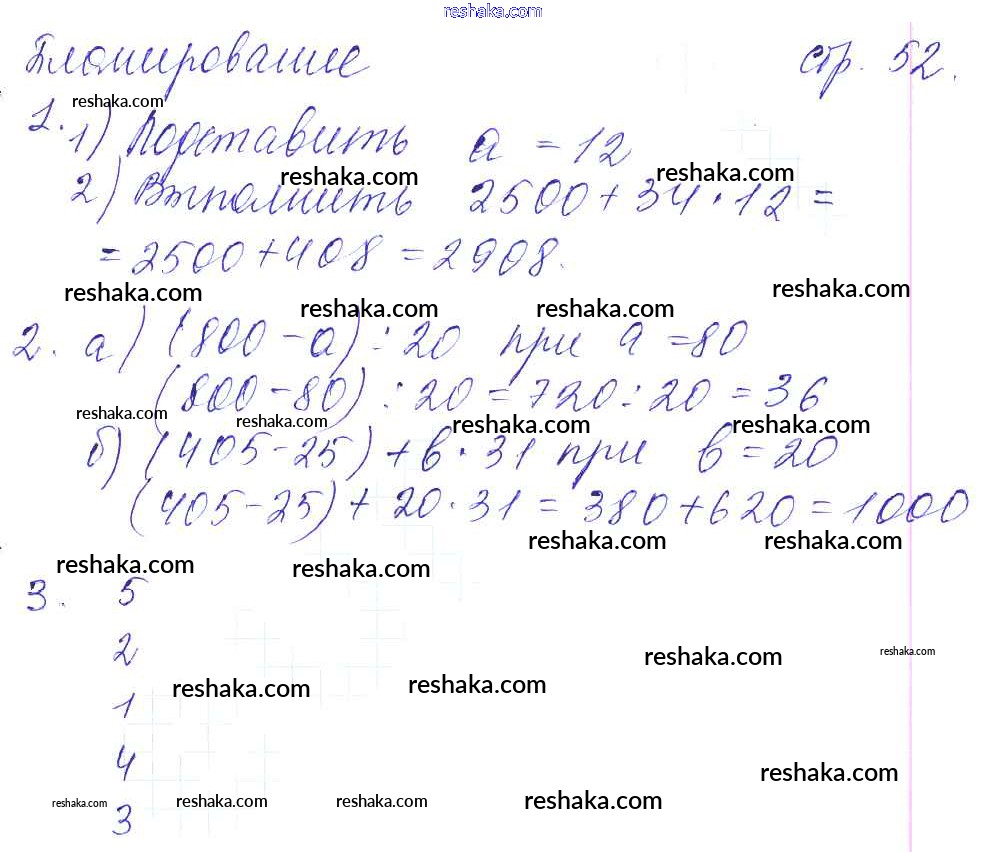 reshaka.com
Планирование стр. 52.
reshaka.com
1. 1) Подставить a = 12
reshaka.com reshaka.com
2) Выполнить 2500 + 34 · 12 =
= 2500 + 408 = 2908.
reshaka.com reshaka.com reshaka.com reshaka.com
2. а) (800 - a) : 20 при a = 80
(800 - 80) : 20 = 720 : 20 = 36
reshaka.com reshaka.com reshaka.com reshaka.com
б) (405 - 25) + в · 31 при в = 20
(405 - 25) + 20 · 31 = 380 + 620 = 1000
reshaka.com reshaka.com
reshaka.com reshaka.com
3. 5
2
reshaka.com reshaka.com
reshaka.com reshaka.com
1
4
reshaka.com
reshaka.com reshaka.com reshaka.com reshaka.com
3